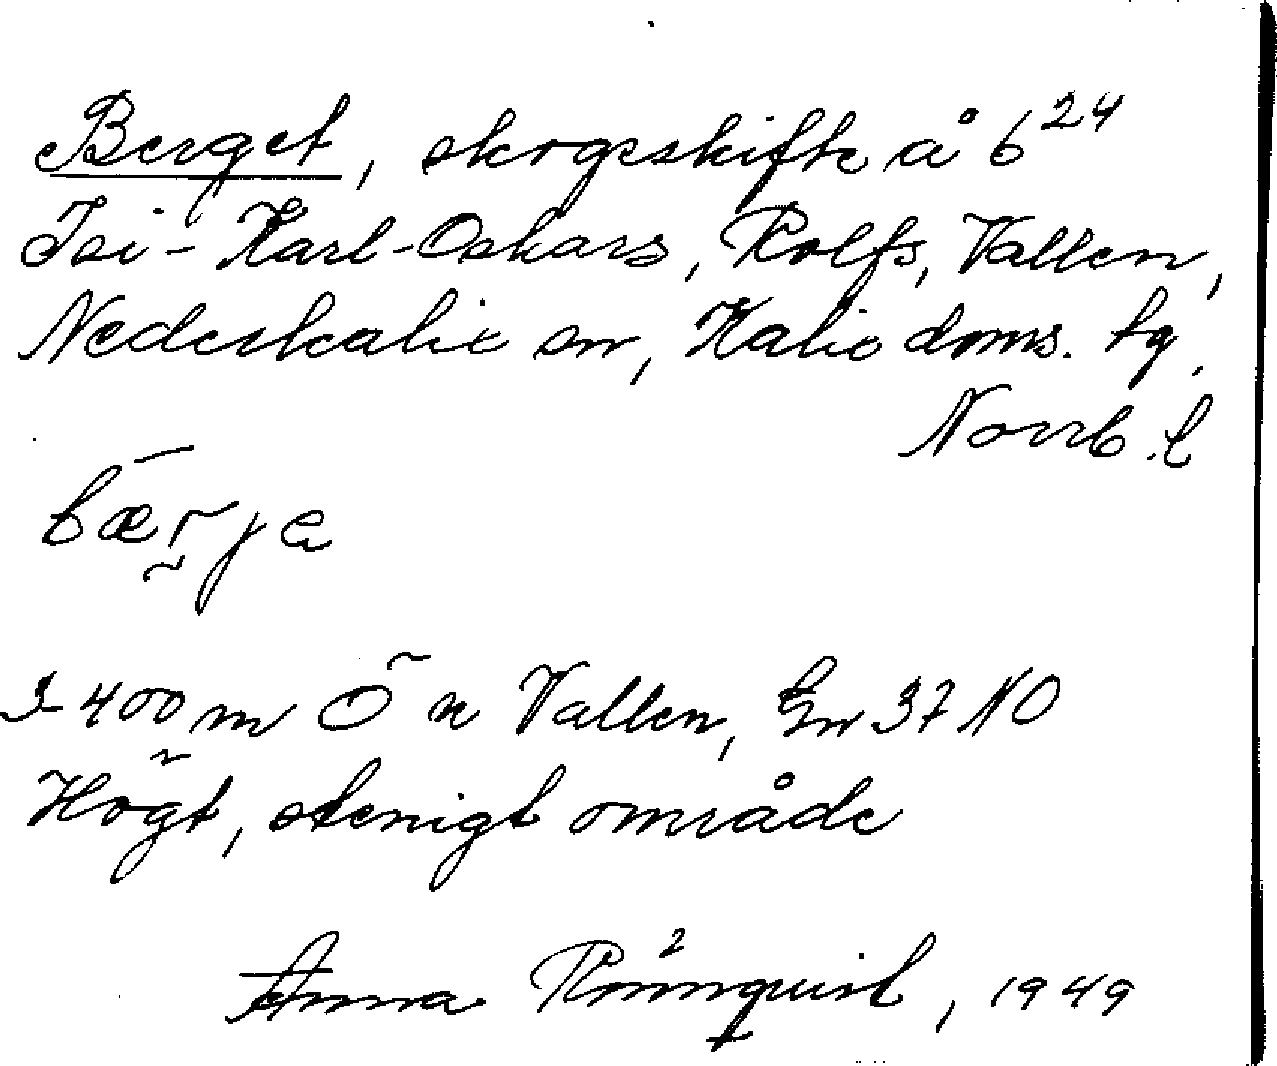 Berget, skogsskifte å 6²⁴
Isi-Karl-Oskars, Rolfs, Vallen,
Nederkalix sn, Kalix doms. tg.
Norrb. l
bærja
400 m Ö n Vallen, Gn 37 NO
Högt, stenigt område
Anna Rönnquist, 1949